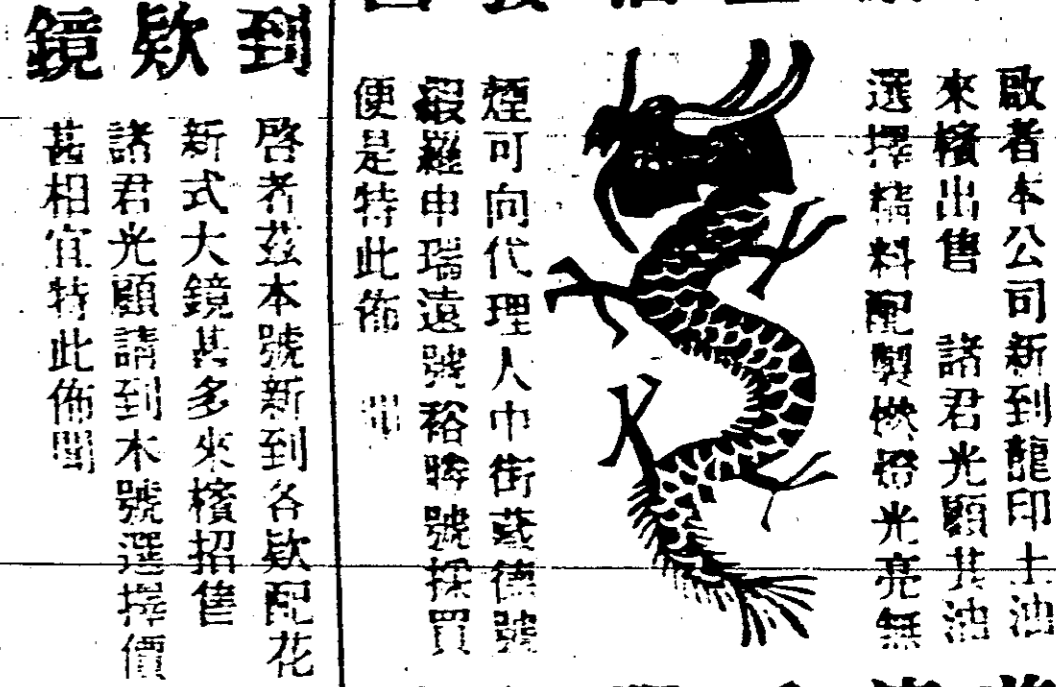 啟者本公司新到龍印土油
來檳出售 諸君光顧其油
選擇精料配製燃燈光亮無
煙可向代理人中街 德號
羅申瑞遠號裕 號採買
便是特此佈
到欵鏡
啓者茲本號新到各欵配花
新式大鏡甚多來檳招售
諸君光顧請到本號選擇價
甚相宜特此佈聞